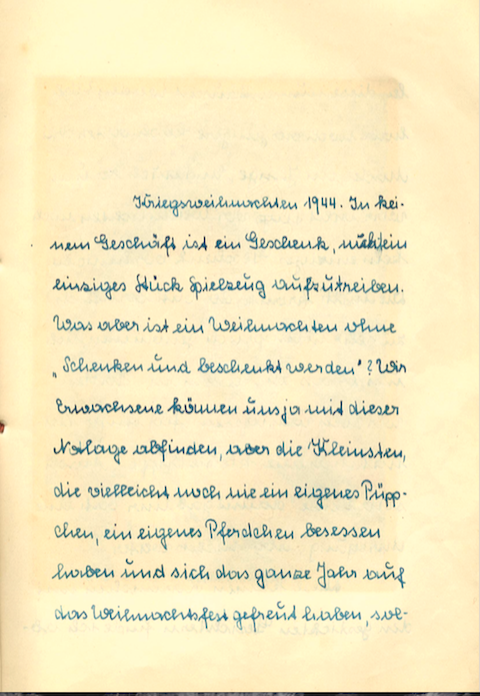 Kriegsweihnachten 1944. In kei-
nem Geschäft ist ein Geschenk, nicht ein
einziges Stück Spielzeug aufzutreiben.
Was aber ist ein Weihnachten ohne
„Schenken und beschenkt werden"? Wir
Erwachsene können uns ja mit dieser
Notlage abfinden, aber die Kleinsten,
die vielleicht noch nie ein eigenes Püpp-
chen, ein eigenes Pferdchen besessen
haben und sich das ganze Jahr auf
das Weihnachtsfest gefreut haben, sol-